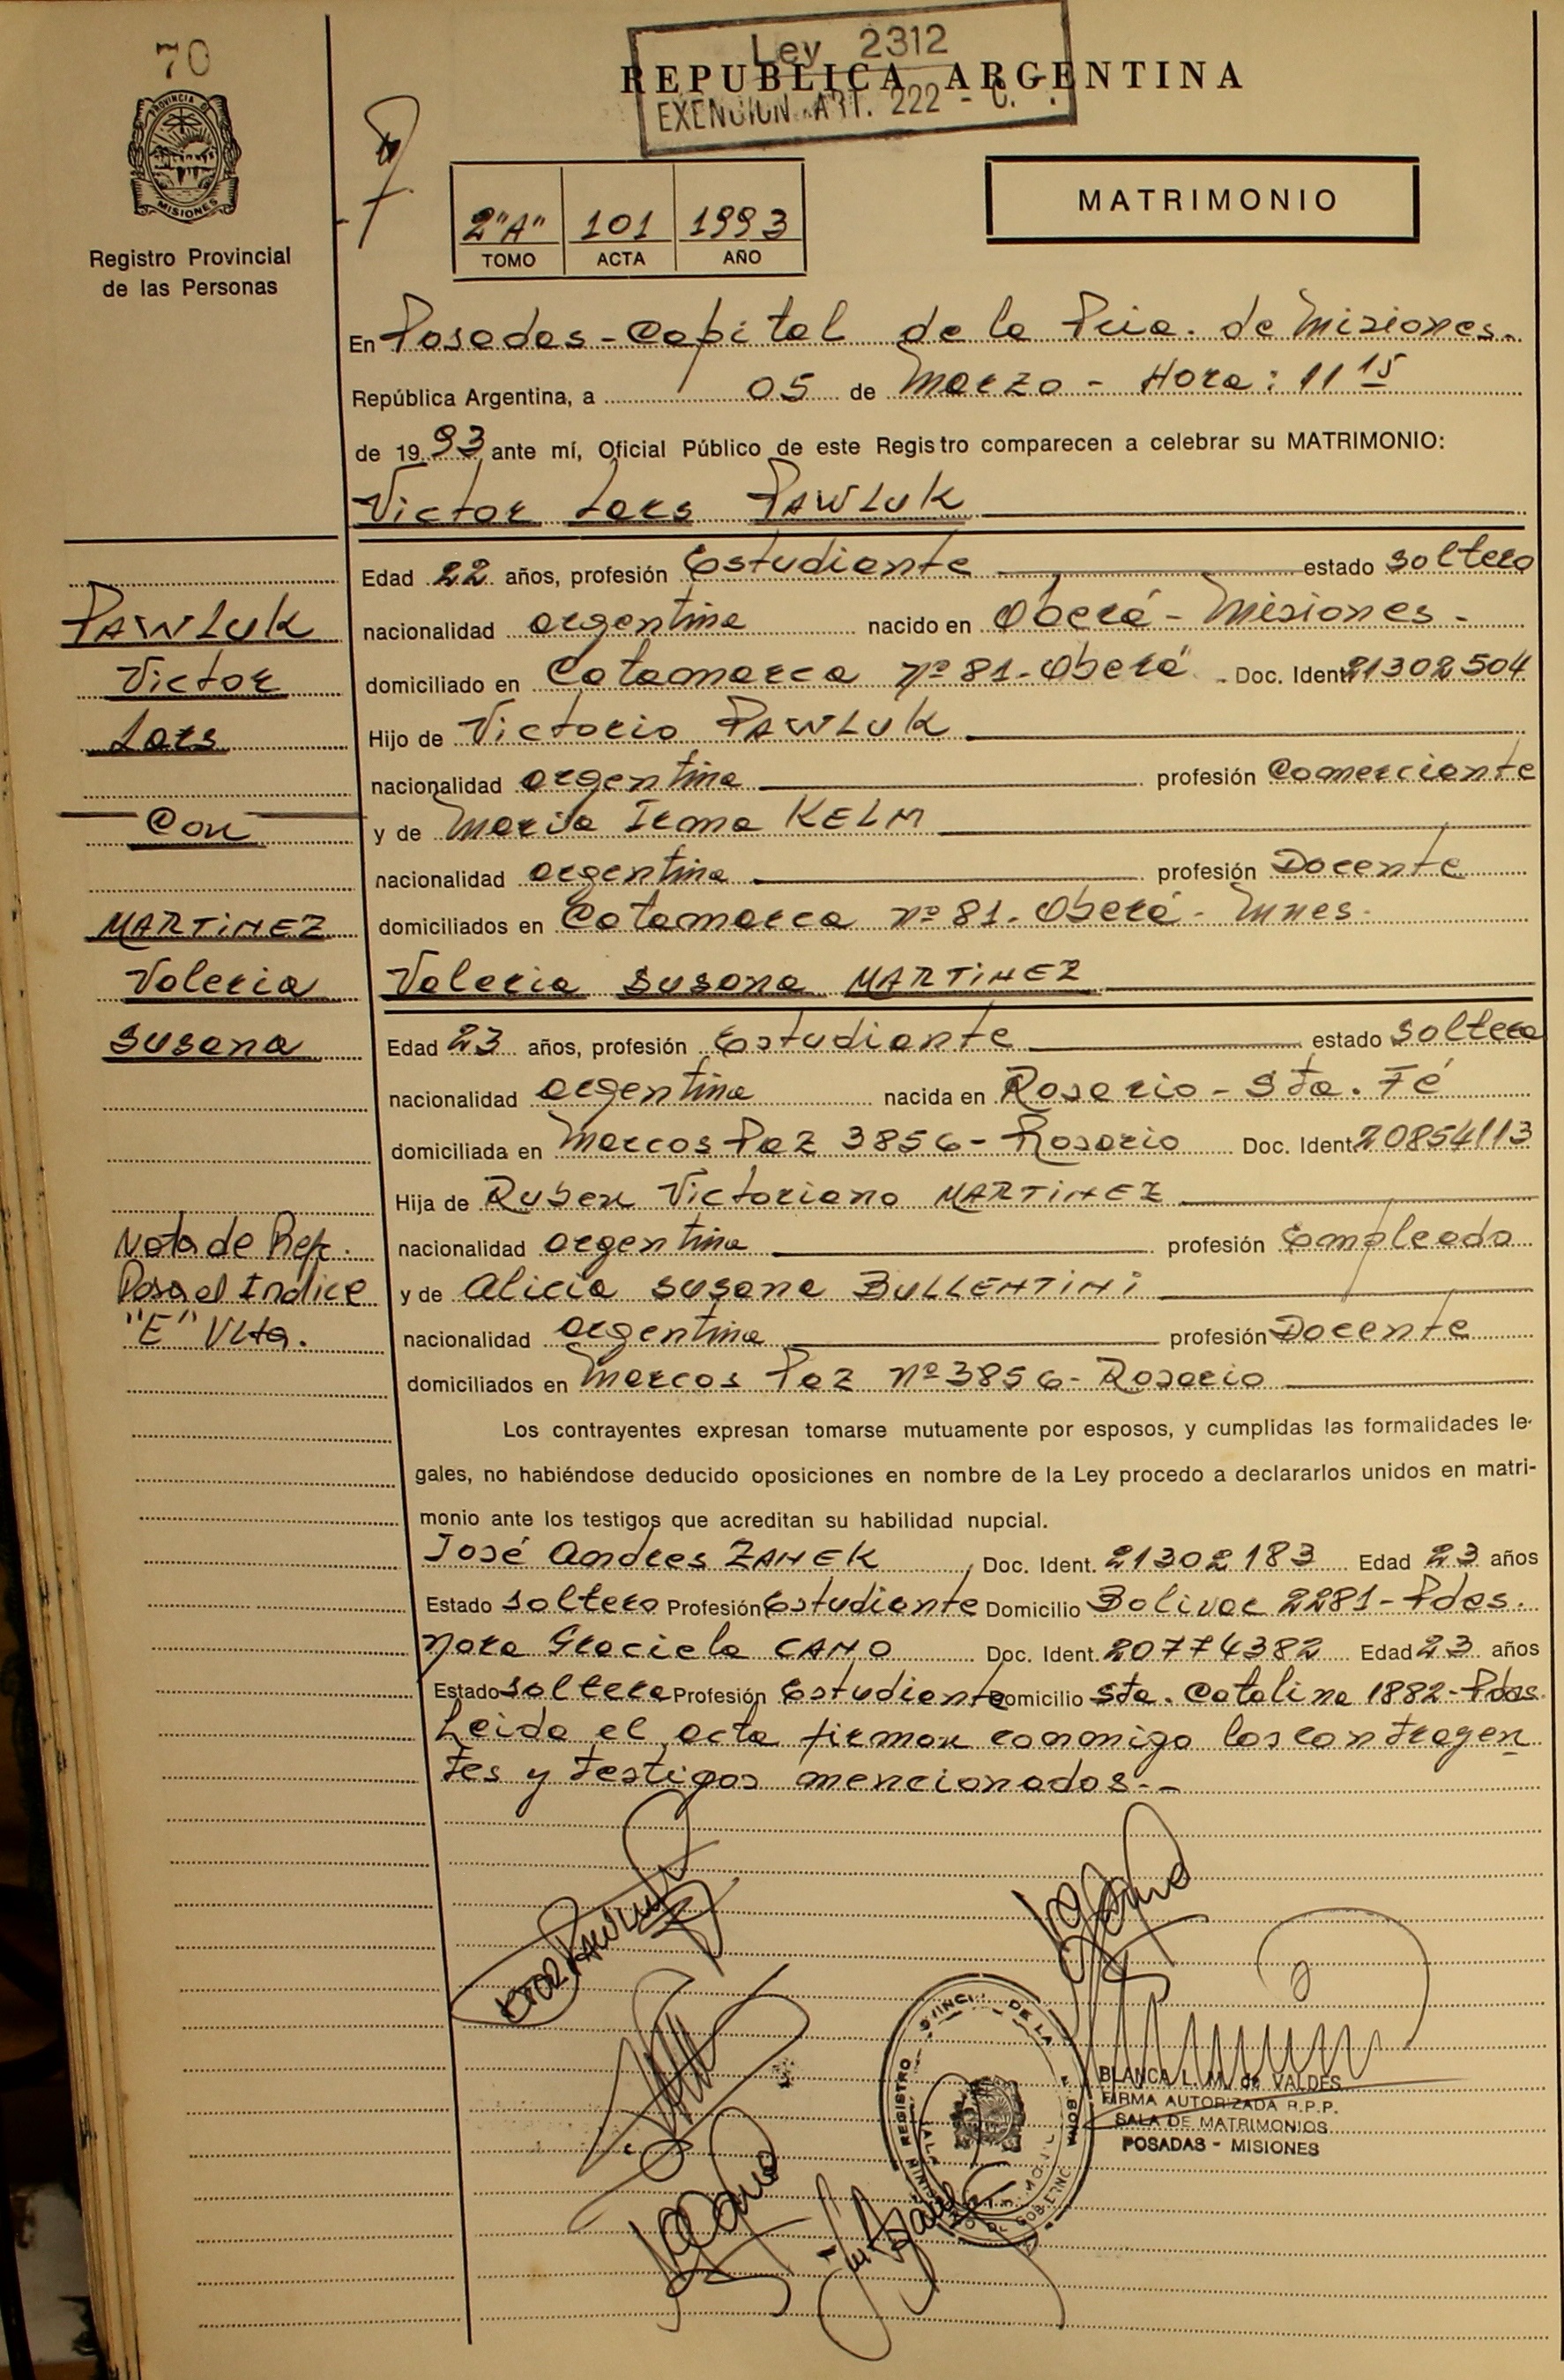 70
Ley 2312
REPUBLICA ARGENTINA
EXENCION ART. 222 - C.
PROVINCIA D
MISIONES
Registro Provincial
de las Personas
2"A" 101 1993
TOMO ACTA AÑO
MATRIMONIO
En Posadas - Capital de la Pcia. de Misiones.
República Argentina, a 05 de Marzo - Hora: 11 15
de 1993 ante mí, Oficial Público de este Registro comparecen a celebrar su MATRIMONIO:
Victor Lars PAWLUK
Edad 22 años, profesión Estudiante estado soltero
nacionalidad argentina nacido en Oberá - Misiones -
domiciliado en Catamarca nº 81 - Oberá - Doc. Ident. 21302504
Hijo de Victorio PAWLUK
nacionalidad argentina profesión Comerciante
y de Maria Irma KELM
nacionalidad argentina profesión Docente
domiciliados en Catamarca nº 81 - Oberá - Mnes -
Valeria Susana MARTINEZ
Edad 23 años, profesión Estudiante estado soltera
nacionalidad argentina nacida en Rosario - Sta. Fé
domiciliada en Marcos Paz 3856 - Rosario Doc. Ident. 20854113
Hija de Ruben Victoriano MARTINEZ
nacionalidad argentina profesión Empleado
y de Alicia Susana BULLENTINI
nacionalidad argentina profesión Docente
domiciliados en Marcos Paz nº 3856 - Rosario
PAWLUK
Victor
Lars
Con
MARTINEZ
Valeria
Susana
Nota de Ref.
Pasa al Indice
"E" Vlta.
Los contrayentes expresan tomarse mutuamente por esposos, y cumplidas las formalidades le-
gales, no habiéndose deducido oposiciones en nombre de la Ley procedo a declararlos unidos en matri-
monio ante los testigos que acreditan su habilidad nupcial.
José Andres ZANEK Doc. Ident. 21302183 Edad 23 años
Estado soltero Profesión Estudiante Domicilio Bolivar 2281 - Pdas.
Nora Graciela CANO Doc. Ident. 20774382 Edad 23 años
Estado soltera Profesión Estudiante Domicilio Sta. Catalina 1882 - Pdas.
Leida el acta firman conmigo los contrayen
tes y testigos mencionados.-
BLANCA L. M. de VALDES
FIRMA AUTORIZADA R.P.P.
SALA DE MATRIMONIOS
POSADAS - MISIONES
REGISTRO
DE LA